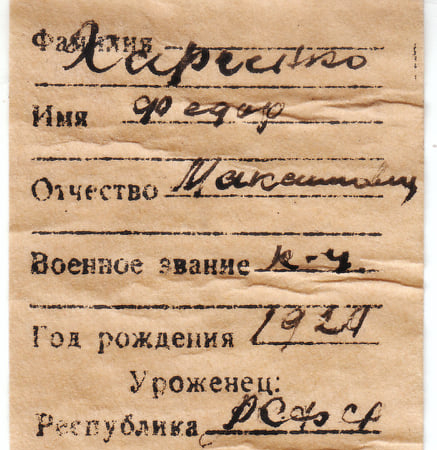 Фамилия Харченко
Имя Федор
Отчество
Военное звание к-ц
Год рождения 1921
Уроженец:
Республика РСФСР